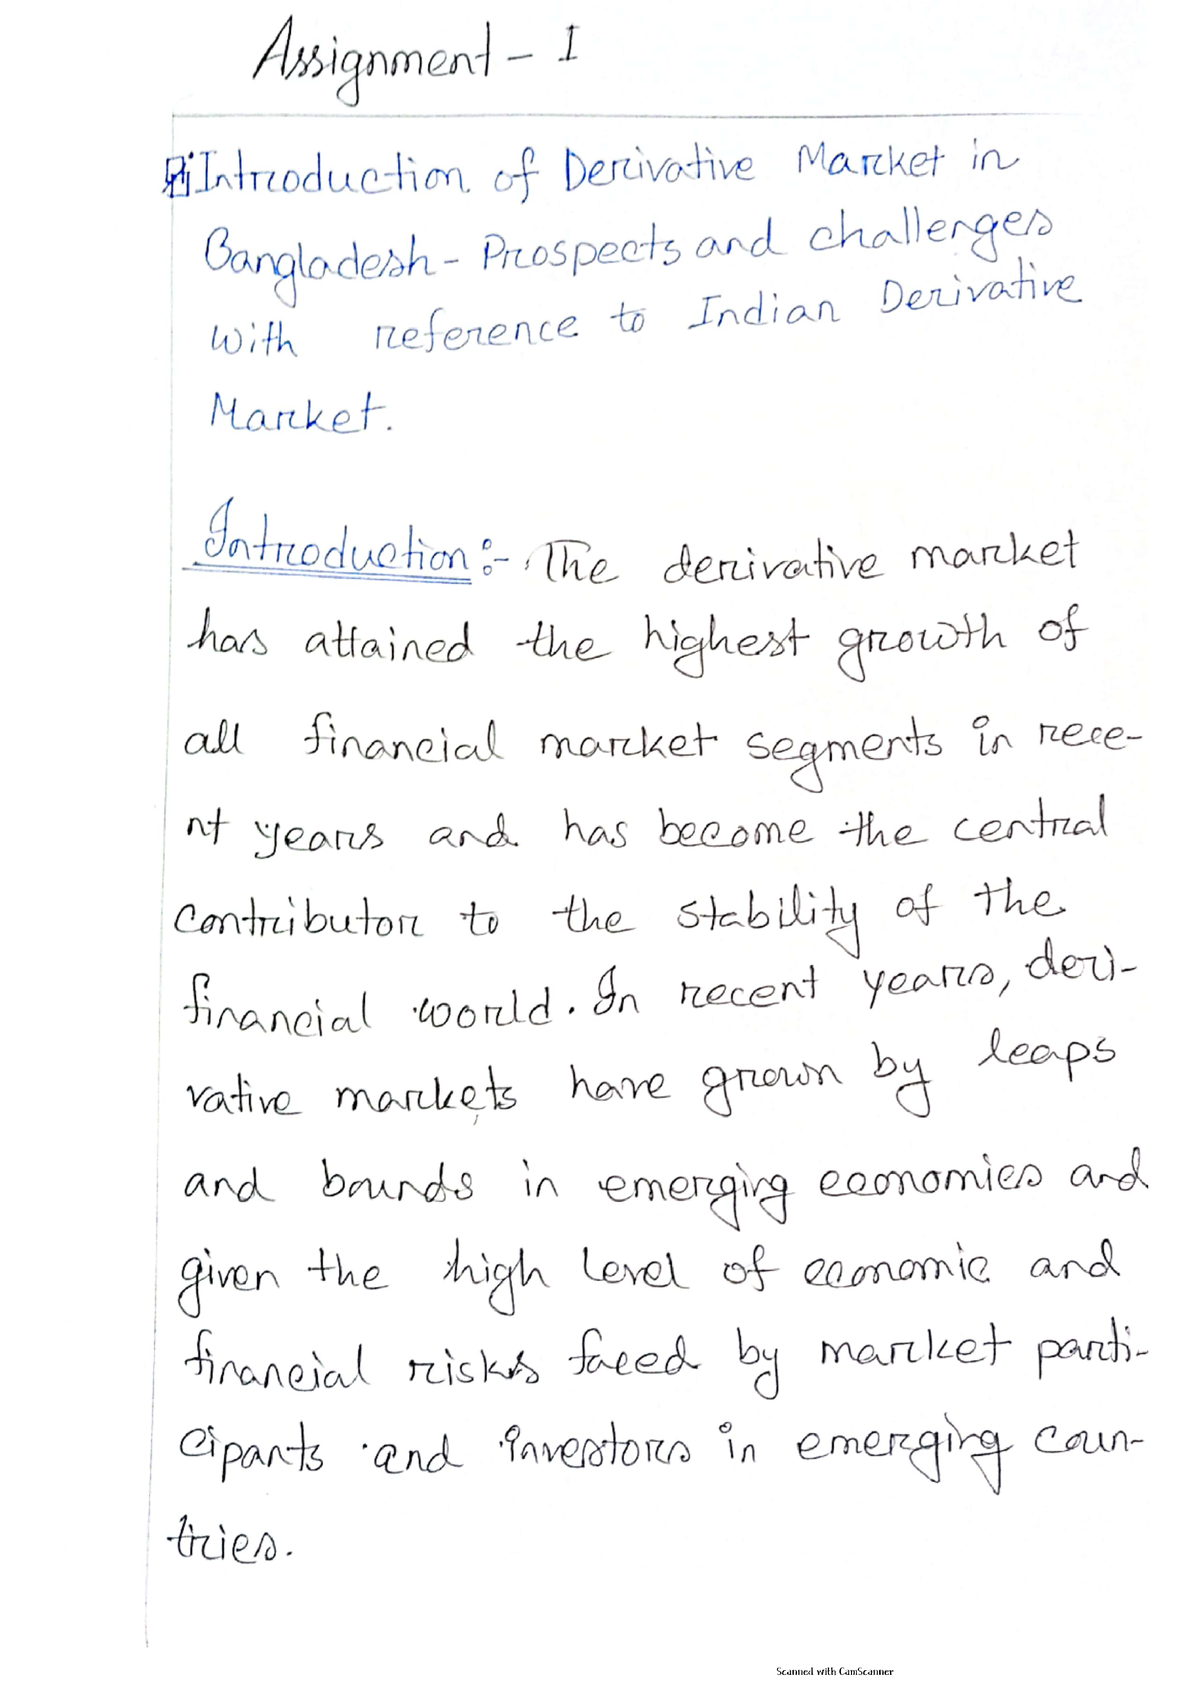 Assignment - I
Introduction of Derivative Market in
Bangladesh - Prospects and challenges
with reference to Indian Derivative
Market.
Introduction :- The derivative market
has attained the highest growth of
all financial market segments in rece-
nt years and has become the central
contributor to the stability of the
financial world. In recent years, deri-
vative markets have grown by leaps
and bounds in emerging economies and
given the high level of economic and
financial risks faced by market parti-
cipants and investors in emerging coun-
tries.
Scanned with CamScanner